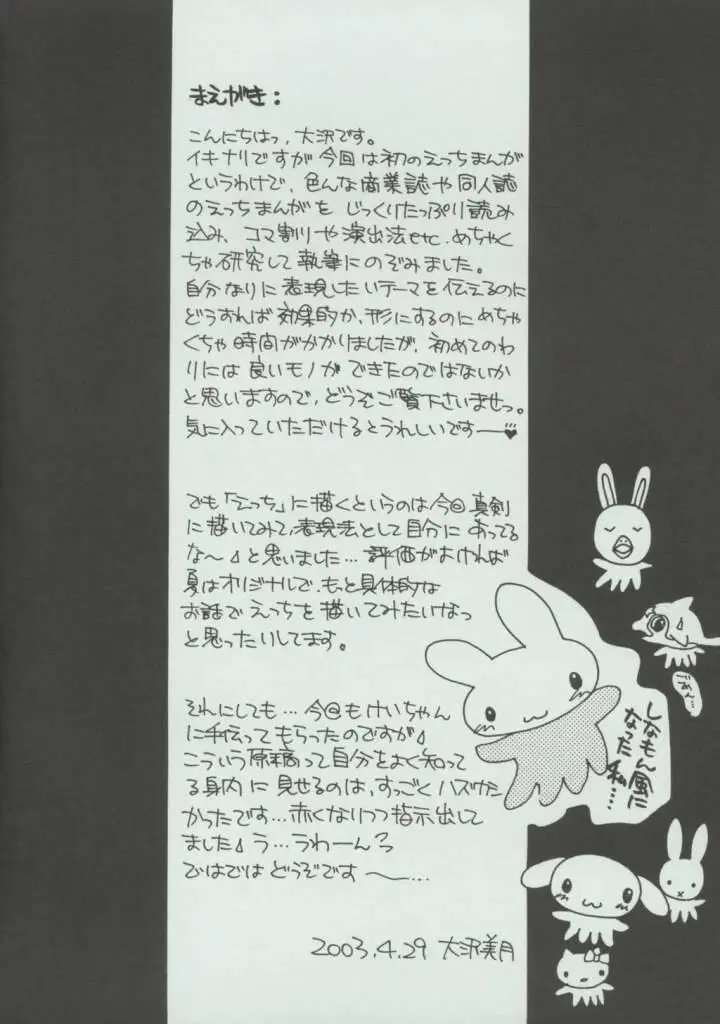 まえがき:
こんにちはっ,大沢です。
イキナリですが今回は初のえっちまんが
というわけで、色んな商業誌や同人誌
のえっちまんがを じっくりたっぷり読み
込み、コマ割りや演出法etc.めちゃく
ちゃ研究して執筆にのぞみました。
自分なりに表現したいテーマを伝えるのに
どうすれば効果的か,形にするのにめちゃ
くちゃ時間がかかりましたが、初めてのわ
りには良いモノができたのではないか
と思いますので,どうぞご覧下さいませっ。
気に入っていただけるとうれしいです―♥
でも「えっち」に描くというのは今回真剣
に描いてみて,表現法として自分にあってる
な〜と思いました…評価がよければ
夏はオリジナルで,もっと具体的な
お話でえっちを描いてみたいなっ
と思ったりしてます。
それにしても…今回もけいちゃん
に手伝ってもらったのですが
こういう原稿って自分をよく知って
る身内に見せるのは,すっごくハズカシ
かったです…赤くなりつつ指示出して
ました う…うわーん
ではでは どうぞです〜…
2003.4.29 大沢美月
しなもん風に
なった私…
ごめん…